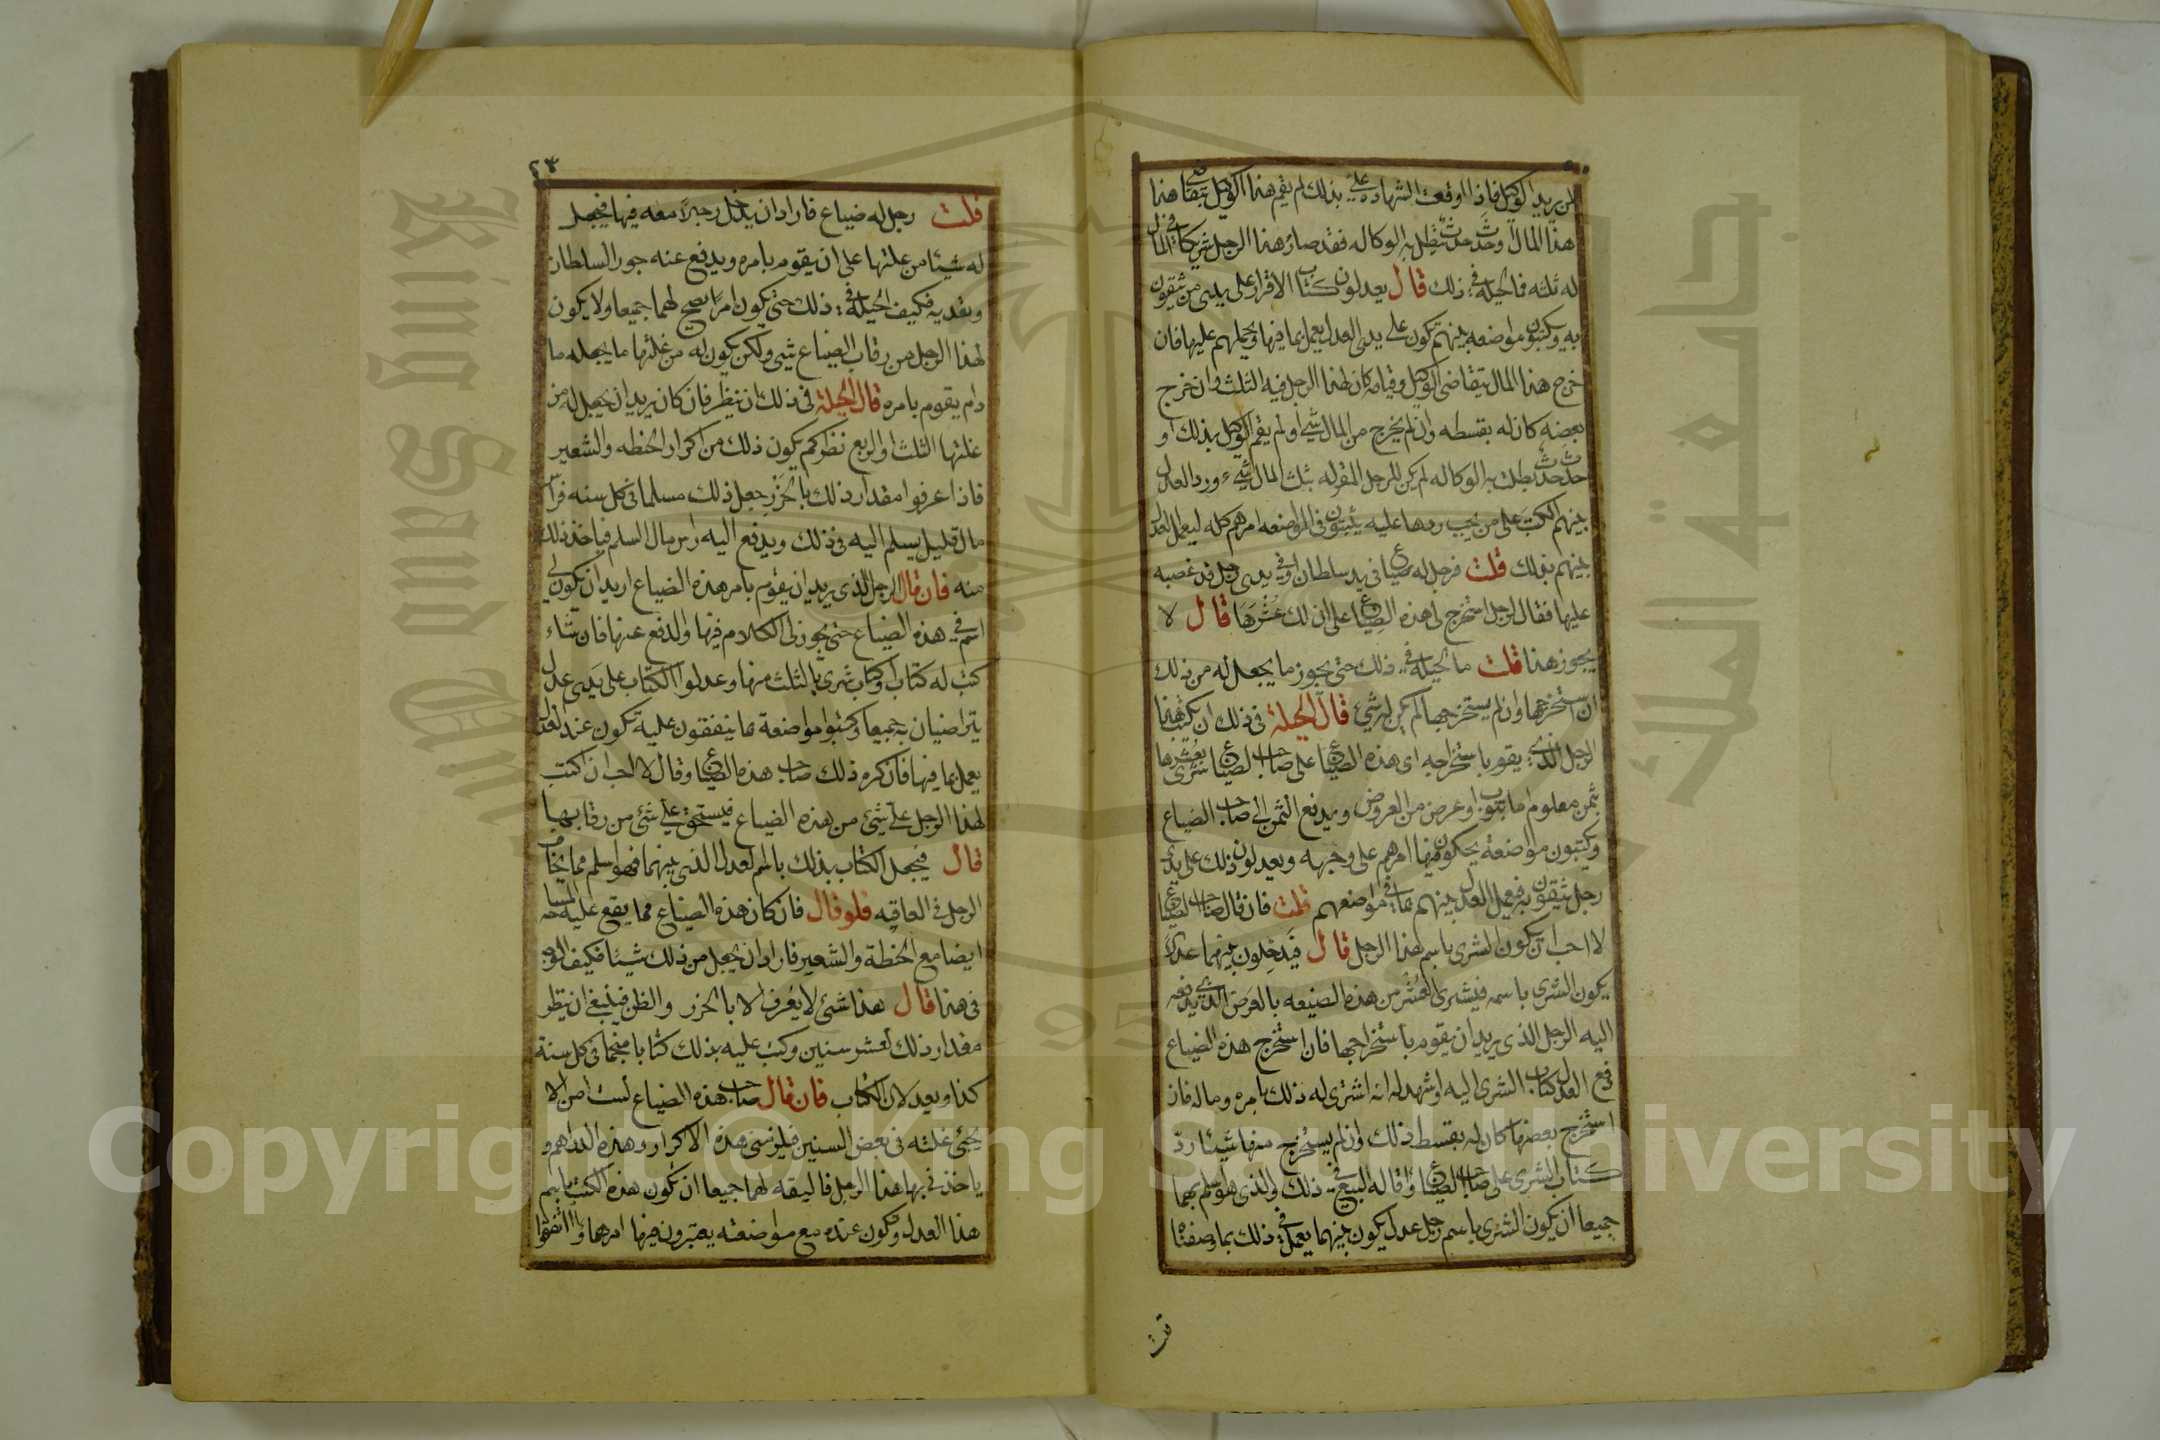 لمن يريد الوكيل فاذا وقعت الشهادة على بذلك لم يقم هذا الوكيل بتقاضى هذا
هذا المال وحدث حدث تبطل به الوكاله فقد صار هذا الرجل شريكا في المال
له ثلثه فما الحيلة في ذلك قال يعدلون كتاب الاقرار على يدى من يثقون
به ويكتبون مواضعه بينهم تكون على يدى العدل يعمل بما فيها ويحملهم عليها فان
خرج هذا المال بتقاضى الوكيل وقيامه كان لهذا الرجل فيه الثلث وان خرج
بعضه كان له بقسطه وان لم يخرج من المال شئ ولم يقم الوكيل بذلك او
حدث حدث بطلت به الوكاله لم يكن للرجل المقر له بثلث المال شيء ورد العدل
بينهم الكتب على من يجب ردها عليه يثبتون في المواضعه امرهم كله ليعمل العدل
بينهم بذلك قلت فرجل له ضياع في يد سلطان او في يدى رجل قد غصبه
عليها فقال لرجل استخرج لى هذه الضياع على ان لك عشرها قال لا
يجوز هذا قلت ما الحيلة في ذلك حتى يجوز ما يجعل له من ذلك
ان استخرجها وان لم يستخرجها لم يكن له شئ قال الحيلة في ذلك ان يكتب هذا
الرجل الذى يقوم باستخراجه اى هذه الضياع على صاحب الضياع شرى بعشرها
بثمن معلوم اما ثوب او عرض من العروض ويدفع الثمن الى صاحب الضياع
ويكتبون مواضعة يحكون فيها امرهم على وجهه ويعدلون ذلك على يدى
رجل يثقون به فيعمل العدل بينهم بما في مواضعهم قلت فان قال صاحب الضياع
لا احب ان تكون الشرى باسم هذا الرجل قال فيدخلون بينهما عدلا
يكون الشرى باسمه فيشترى العشر من هذه الضيعه بالعرض الذى يدفعه
اليه الرجل الذى يريد ان يقوم باستخراجها فان استخرج هذه الضياع
دفع العدل كتاب الشرى اليه واشهد له انه اشترى له ذلك بامره وماله فان
استخرج بعضها كان له بقسط ذلك وان لم يستخرج منها شيئا رد
كتاب الشرى على صاحب الضياع واقاله البيع في ذلك والذى هو اسلم بهما
جميعا ان يكون الشرى باسم رجل عدل يكون بينهما يعمل في ذلك بما وصفناه
قلت
٢٣
قلت رجل له ضياع فاراد ان يدخل رجلا معه فيها فيجعل
له شيئا من غلتها على ان يقوم بامره ويدفع عنه جور السلطان
وتعديه فكيف الحيلة في ذلك حتى يكون امرا يصح لهما جميعا ولا يكون
لهذا الرجل من رقاب الضياع شئ ولكن يكون له من غلتها ما يجعله ما
دام يقوم بامره قال الحيلة في ذلك ان ينظر فان كان يريد ان يجعل له من
غلتها الثلث او الربع نظر كم يكون ذلك من اكرار الحنطه والشعير
فاذا عرفوا مقدار ذلك بالحزر جعل ذلك مسلما في كل سنه
مال قليل يسلم اليه في ذلك ويدفع اليه راس مال السلم فياخذ ذلك
منه فان قال الرجل الذى يريد ان يقوم بامر هذه الضياع اريد ان يكون لى
اسم في هذه الضياع حتى يجوز لى الكلام فيها والدفع عنها فان شاء
كتب له كتابا وكتاب شرى بالثلث منها وعدلوا الكتاب على يدى عدل
يتراضيان به جميعا وكتبوا مواضعة بما يتفقون عليه تكون عند العدل
يعمل بما فيها فان كره ذلك صاحب هذه الضياع وقال لا احب ان اكتب
لهذا الرجل على شئ من هذه الضياع فيستحق على شئ من رقابها
قال فيجعل الكتاب بذلك باسم العدل الذى بينهما فهو اسلم مما يخاف
الرجل في العاقبه قلو قال فان كان هذه الضياع مما يقع عليه المساحه
ايضا مع الحنطة والشعير فاراد ان يجعل من ذلك شيئا فكيف الوجه
في هذا قال هذا شئ لا يعرف الا بالحزر والظن فينبغى ان ينظر
مقدار ذلك لعشر سنين وكتب عليه بذلك كتابا منجما في كل سنة
كذا ويعدلان الكتاب فان قال صاحب هذه الضياع لست امن الا
يجئ غلته في بعض السنين فيلزمنى هذه الاكرار وهذه الدراهم و
ياخذنى بها هذا الرجل فالثقه لهما جميعا ان تكون هذه الكتب باسم
هذا العدل وتكون عنده مع مواضعه يعتبرون فيها امرهما وما اتفقا
King Saud University
جامعة الملك سعود
1957
Copyright © King Saud University